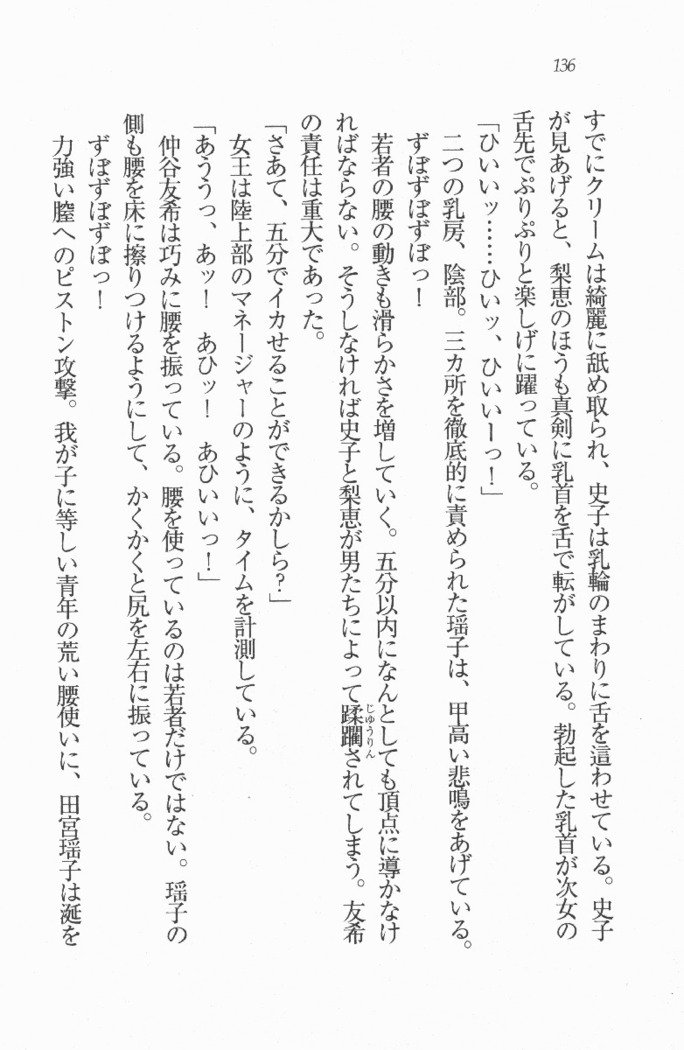 136
すでにクリームは綺麗に舐め取られ、史子は乳輪のまわりに舌を這わせている。史子
が見あげると、梨恵のほうも真剣に乳首を舌で転がしている。勃起した乳首が次女の
舌先でぷりぷりと楽しげに躍っている。
「ひいいッ……ひいッ、ひいいーっ！」
二つの乳房、陰部。三カ所を徹底的に責められた瑶子は、甲高い悲鳴をあげている。
ずぼずぼずぼっ！
若者の腰の動きも滑らかさを増していく。五分以内になんとしても頂点に導かなけ
ればならない。そうしなければ史子と梨恵が男たちによって蹂躙されてしまう。友希
じゆうりん
の責任は重大であった。
「さあて、五分でイカせることができるかしら？」
女王は陸上部のマネージャーのように、タイムを計測している。
「あううっ、あッ！　あひッ！　あひいいっ！」
仲谷友希は巧みに腰を振っている。腰を使っているのは若者だけではない。瑶子の
側も腰を床に擦りつけるようにして、かくかくと尻を左右に振っている。
ずぼずぼずぼっ！
力強い膣へのピストン攻撃。我が子に等しい青年の荒い腰使いに、田宮瑶子は涎を